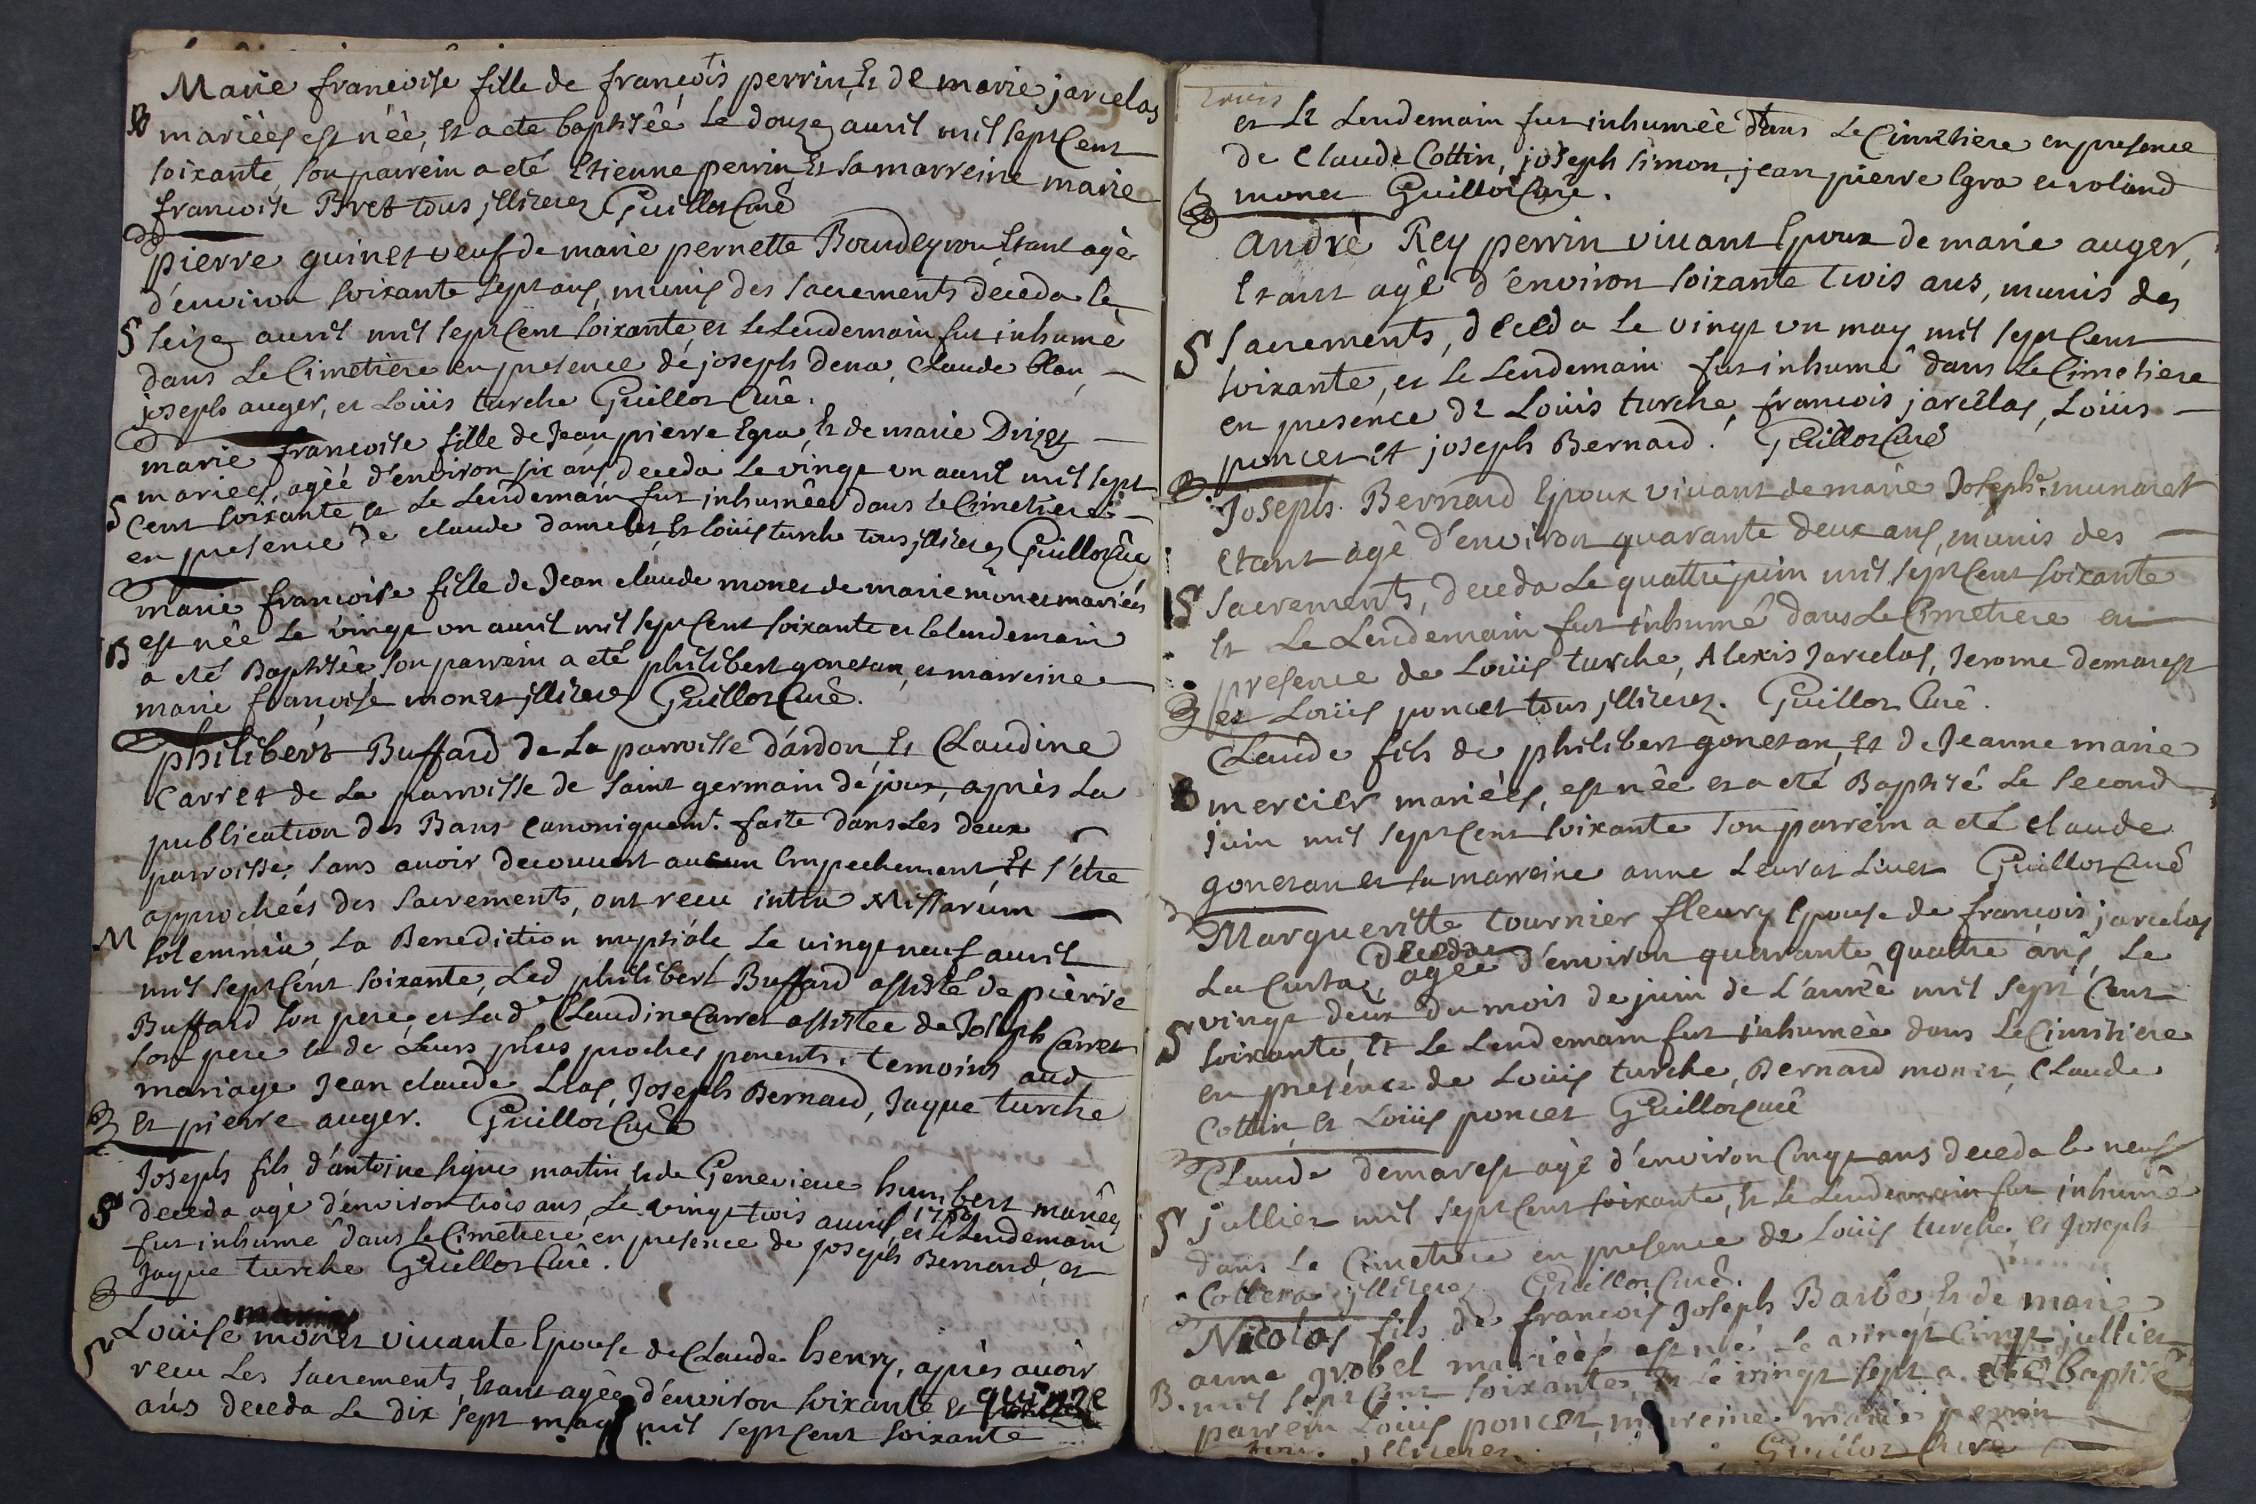 Marie francoise fille de francois perrin, Et de marie jarcelas
B mariées est née, et a eté baptisêê Le douze avril mil sept Cent
soixante, son parrein a eté Etienne perrin Et sa marreine marie
francoise Bret tous jlliterez Guillot Curê
pierre guinet veuf de marie pernette Bourdeyron Etant agé
d'environ soixante sept ans, munis des sacrements déceda le
S seize avril mil sept Cent soixante, et Le Lendemain fut inhumé
dans Le Cimetière en presence de joseph dena, Claude blan,
joseph auger, et Loüis turche Guillot Curê.
marie francoise fille de Jean pierre Egra, Et de marie Drizet
mariées, agéé d'environ six ans deceda Le vingt un avril mil sept
S Cent soixante et Le Lendemain fut inhumêe dans Le Cimetiere
en presence de claude damelet, Et loüis turche tous jlliterez Guillot Curé
marie francoise fille de Jean claude monet de marie monet mariés
B est nêe Le vingt un avril mil sept Cent soixante et le lendemain
a eté Baptisêe, son parrein a eté philibert gonetan, et marreine
marie françoise monet jlliterez Guillot Curê.
philibert Buffard de La parroisse d'ardon, Et Claudine
Carret de La parroisse de saint germain de joux, après La
publication des Bans canoniquemt. faite dans Les deux
parroisse, sans avoir decouvert aucun Empechement, Et s'être
approchéés des sacrements, ont recu intra Missarum
M solemnia, La Benediction nuptiale Le vingt neuf avril
mil sept Cent soixante, Led philibert Buffard assisté de pierre
Buffard son pere, et Lade Claudine Carret assistee de Joseph Carret
son pere et de Leurs plus proches parents. temoins aud
mariage Jean claude Llas, Joseph Bernard, Jaque turche
Et pierre auger. Guillot Curé
Joseph fils d'antoine ligne martin, et de Genevieve humbert mariées
S deceda agé d'environ trois ans, Le vingt trois avril 1760, et le Lendemain
fut inhumé dans Le Cimetiere en presence de joseph Bernard, et
Jaque turche Guillot Curê.
Loüise monet vivante Epouse de Claude henry, après avoir
S recu Les sacrements, Etant agée d'environ soixante et quinze
ans deceda Le dix sept may mil sept Cent soixante
et Le Lendemain fut inhumée dans Le Cimetiere en presence
de Claude Cottin, joseph simon, jean pierre Egra et roland
monet Guillot Curé.
andré Rey perrin vivant Epoux de marie auger,
Etant agé d'environ soixante trois ans, munis des
S sacrements, deceda Le vingt un may mil sept Cent
soixante, et Le Lendemain fut inhumé dans Le Cimetiere
en presence de Loüis turche, francois jarcelas, Loüis
poncet et joseph Bernard. Guillot Curé
Joseph Bernard Epoux vivant de marie Josephe. munaret
Etant agé d'environ quarante deux ans, munis des
S sacrements, deceda Le quattre juin mil sept Cent soixante
Et Le Lendemain fut inhumé dans Le Cimetiere en
presence de Loüis turche, Alexis Jarcelas, Jerome demarest
et Loüis poncet tous jlliterez. Guillot Curé.
Claude fils de philibert gonetan, Et de Jeanne marie
B mercier mariéés, est née et a eté Baptisé Le second
juin mil sept Cent soixante son parrein a eté claude
gonetan et sa marreine anne Levrat Livet Guillot Curé
Margueritte tournier fleury Epouse de francois jarcelas
La Curtaz, deceda agée d'environ quarante quattre ans, Le
vingt deux du mois de juin de L'année mil sept Cent
S soixante, Et Le Lendemain fut inhumée dans Le Cimetiere
en presénce de Loüis turche, Bernard monet, Claude
Cottin, et Loüis poncet Guillot Curé
Claude demarest agé d'environ Cinqt ans deceda le neuf
S jullier mil sept Cent soixante, Et Le Lendemain fut inhumê
dans Le Cimetiere en presence de Loüis turche et Joseph
Collera jlliterez Guillot Curé.
Nicolas fils de francois Joseph Barbe, Et de marie
anne grobel mariéés est né Le vingt Cinqt jullier
B. mil sept Cent soixante, Et Le vingt sept a eté baptisé
parrein Loüis poncet, marreine marie perrin
tous jlliterez. Guillot Curé